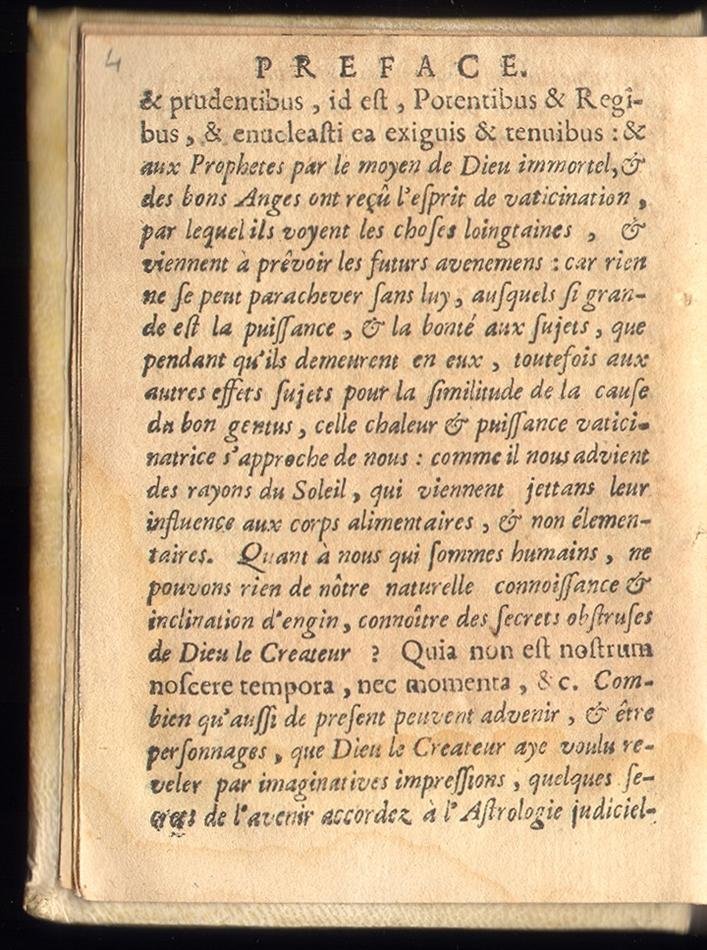 4
PREFACE.
& prudentibus, id eſt, Potentibus & Regi-
bus, & enucleaſti ea exiguis & tenuibus : &
aux Prophetes par le moyen de Dieu immortel, &
des bons Anges ont reçû l'eſprit de vaticination,
par lequel ils voyent les choſes loingtaines, &
viennent à prêvoir les futurs avenemens : car rien
ne ſe peut parachever ſans luy, auſquels ſi gran-
de eſt la puiſſance, & la bonté aux ſujets, que
pendant qu'ils demeurent en eux, toutefois aux
autres effets ſujets pour la ſimilitude de la cauſe
du bon genius, celle chaleur & puiſſance vatici-
natrice s'approche de nous : comme il nous advient
des rayons du Soleil, qui viennent jettans leur
influence aux corps alimentaires, & non élemen-
taires. Quant à nous qui ſommes humains, ne
pouvons rien de nôtre naturelle connoiſſance &
inclination d'engin, connoître des ſecrets obſtruſes
de Dieu le Createur ? Quia non eſt noſtrum
noſcere tempora, nec momenta, &c. Com-
bien qu'auſſi de preſent peuvent advenir, & être
perſonnages, que Dieu le Createur aye voulu re-
veler par imaginatives impreſſions, quelques ſe-
crets de l'avenir accordez à l'Aſtrologie judiciel-